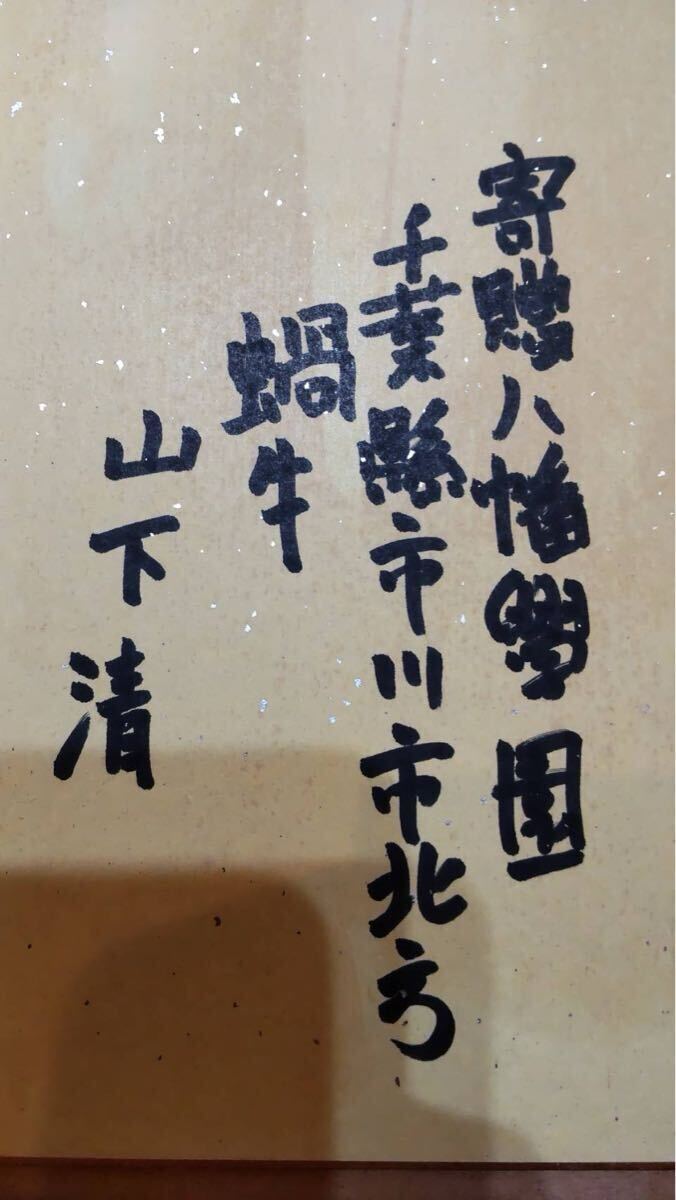 寄贈八幡學園
千葉縣市川市北方
蝸牛
山下清